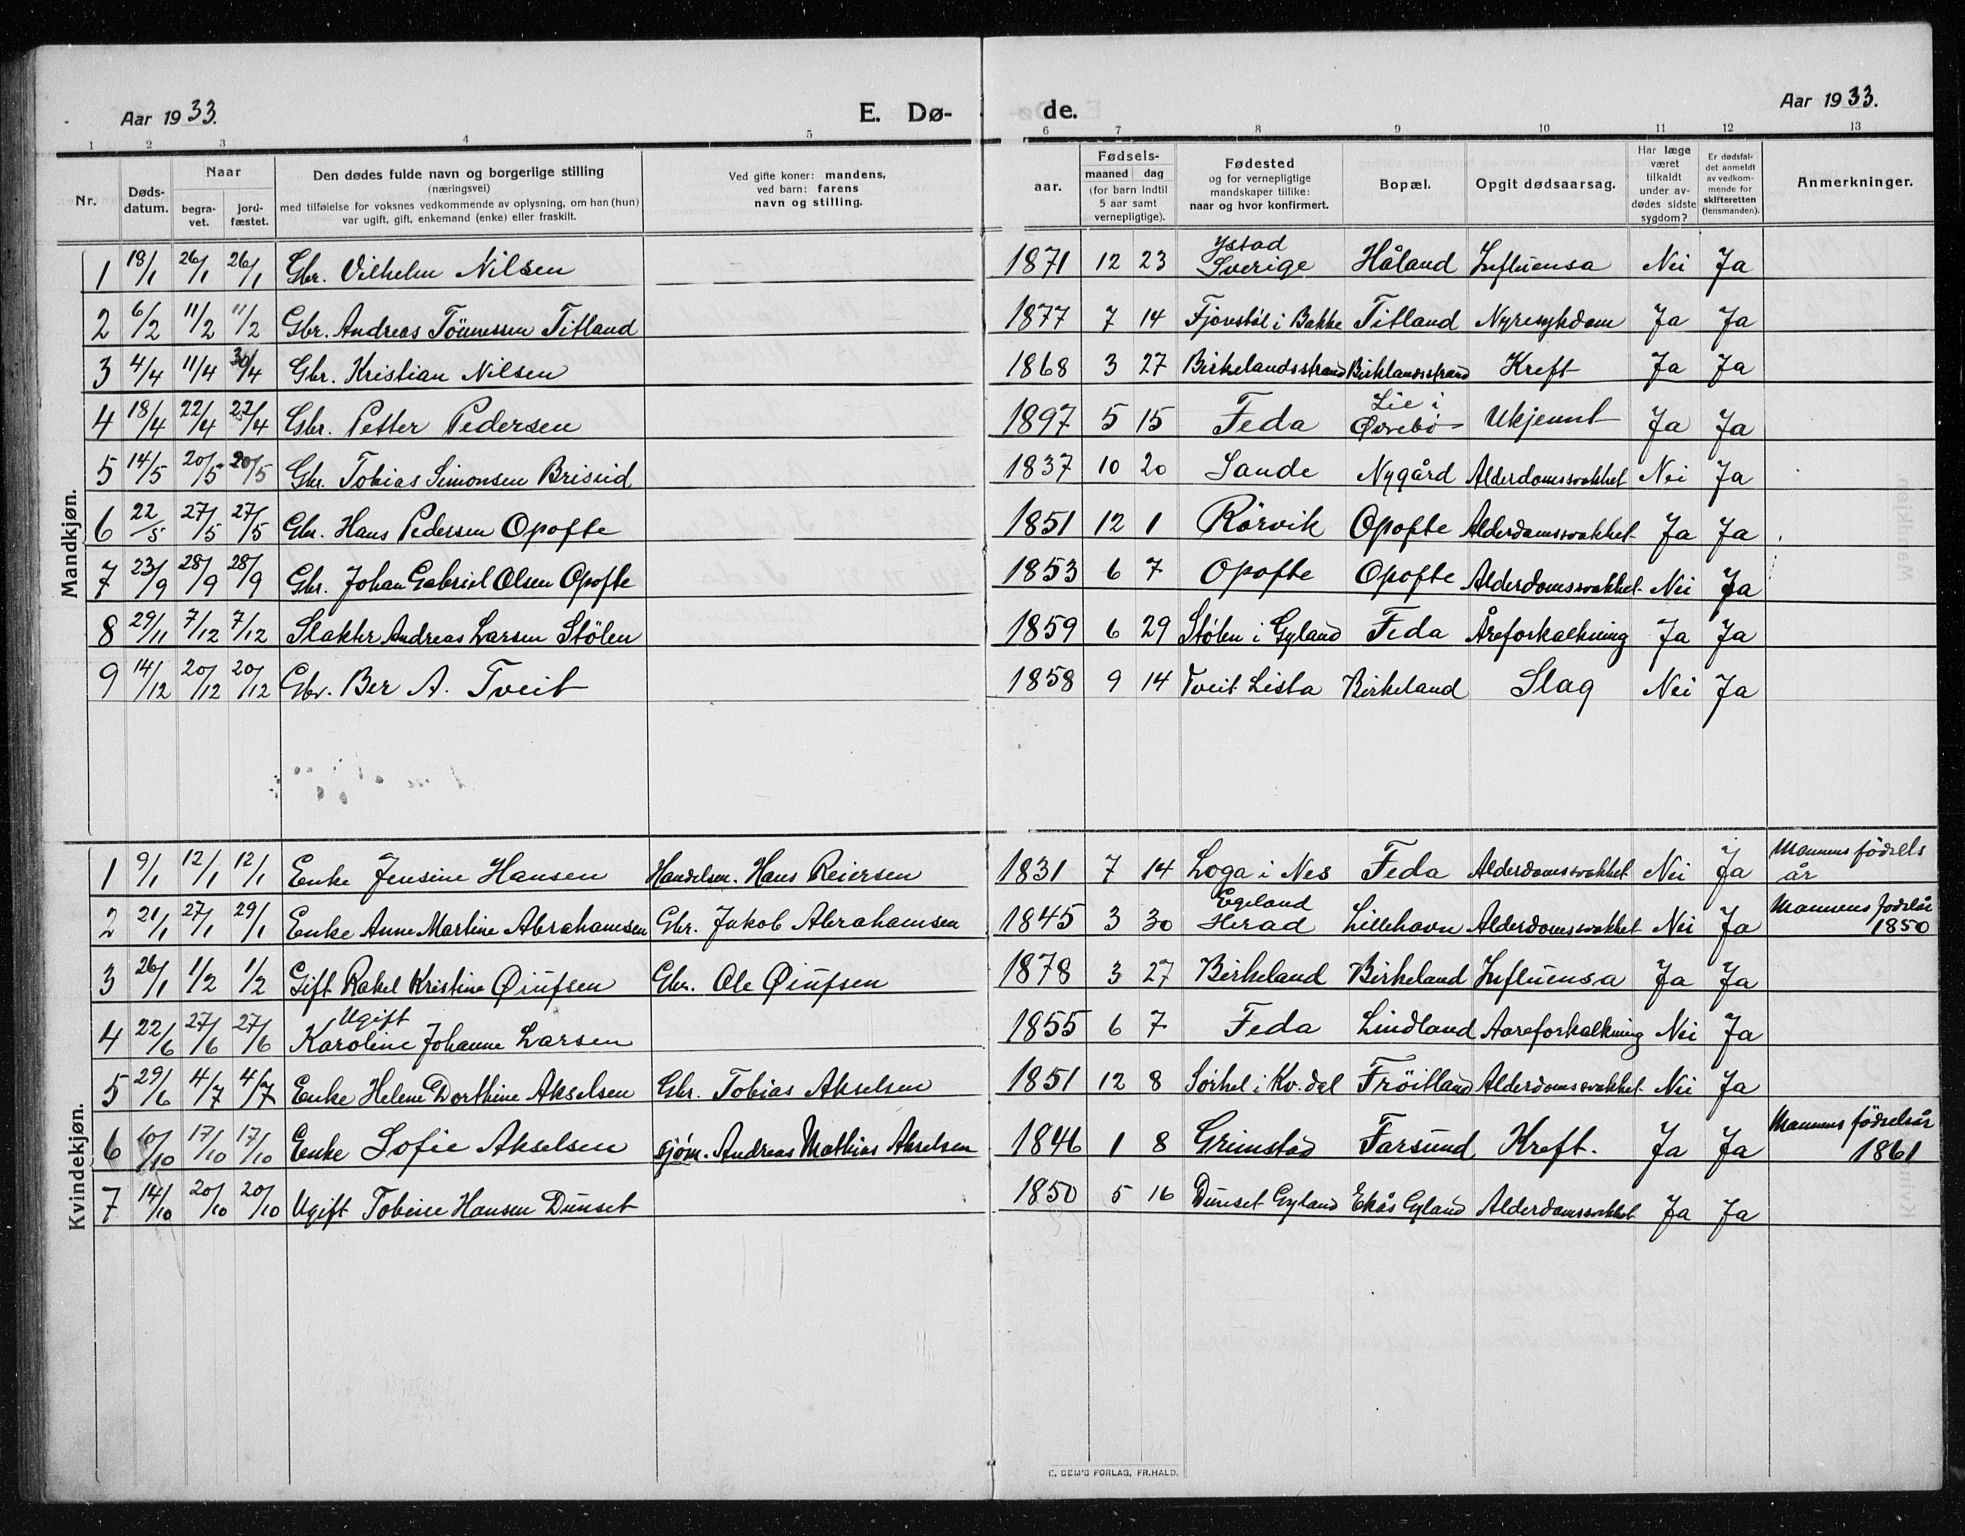 Aar 1933. E. Dø- de. Aar 1933.
1 2 3 4 5 6 7 8 9 10 11 12 13
Nr. Døds-datum. Naar begra-vet. jord-fæstet. Den dødes fulde navn og borgerlige stilling (næringsvei) med tilføielse for voksnes vedkommende av oplysning, om han (hun) var ugift, gift, enkemand (enke) eller fraskilt. Ved gifte koner: mandens, ved barn: farens navn og stilling. aar. Fødsels- maaned dag (for barn indtil 5 aar samt vernepligtige). Fødested og for vernepligtige mandskaper tillike: naar og hvor konfirmert. Bopæl. Opgit dødsaarsag. Har læge været tilkaldt under av-dødes sidste sygdom? Er dødsfal-det anmeldt av vedkom-mende for skifteretten (lensmanden). Anmerkninger.
Mandkjøn.
1 18/1 26/1 26/1 Gbr. Vilhelm Nilsen 1871 12 23 Ystad Sverige Håland Influensa Nei Ja
2 6/2 11/2 11/2 Gbr. Andreas Tönnessen Titland 1877 7 14 Fjonstöl i Bakke Titland Nyresykdom Ja Ja
3 4/4 11/4 30/4 Gbr. Kristian Nilsen 1868 3 27 Birkelandsstrand Birklandsstrand Kreft Ja Ja
4 18/4 22/4 22/4 Gbr. Petter Pedersen 1897 5 15 Feda Lie i Øvrebö Ukjennt Ja Ja
5 14/5 20/5 20/5 Gbr. Tobias Simonsen Briseid 1837 10 20 Sande Nygård Alderdomssvakhet Nei Ja
6 22/5 27/5 27/5 Gbr. Hans Pedersen Opofte 1851 12 1 Rörvik Opofte Alderdomssvakhet Ja Ja
7 23/9 28/9 28/9 Gbr. Johan Gabriel Olsen Opofte 1853 6 7 Opofte Opofte Alderdomssvakhet Nei Ja
8 29/11 7/12 7/12 Slakter Andreas Larsen Stölen 1859 6 29 Stölen i Gyland Feda Åreforkalkning Ja Ja
9 14/12 20/12 20/12 Gbr. Ber A. Tveit 1858 9 14 Tveit Lista Birkeland Slag Nei Ja
Kvindekjøn.
1 9/1 12/1 12/1 Enke Jensine Hansen Handelsm. Hans Reiersen 1831 7 14 Loga i Nes Feda Alderdomssvakhet Nei Ja Mannens födsels år
2 21/1 27/1 29/1 Enke Anne Martine Abrahamsen Gbr. Jakob Abrahamsen 1845 3 30 Egeland Herad Lillehavn Alderdomssvakhet Nei Ja Mannens födselår 1850
3 26/1 1/2 1/2 Gift Rakel Kristine Øiufsen Gbr. Ole Øiufsen 1878 3 27 Birkeland Birkeland Influensa Ja Ja
4 22/6 27/6 27/6 Ugift Karoline Johanne Larsen 1855 6 7 Feda Lindland Aareforkalkning Nei Ja
5 29/6 4/7 4/7 Enke Helene Dorthine Akselsen Gbr. Tobias Akselsen 1851 12 8 Sörhel i Kv.dal Fröitland Alderdomssvakhet Nei Ja
6 10/10 17/10 17/10 Enke Sofie Akselsen sjöm. Andreas Mathias Akselsen 1846 1 8 Grimstad Farsund Kreft. Ja Ja Mannens födselsår 1861
7 14/10 20/10 20/10 Ugift Tobine Hansen Dunset 1850 5 16 Dunset Gyland Ekås Gyland Alderdomssvakhet Ja Ja
E. SEM'S FORLAG, FR.HALD.